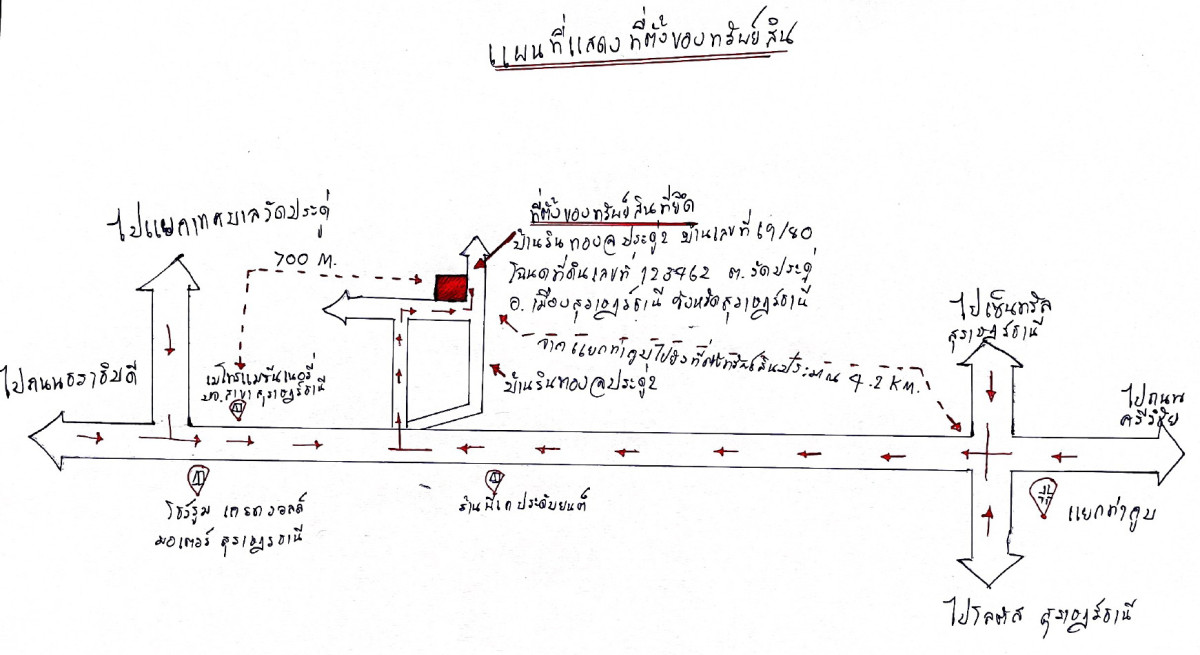 แผนที่แสดงที่ตั้งของทรัพย์สิน
ไปแยกเทศบาลวัดประดู่
700 M.
ที่ตั้งของทรัพย์สินที่ยึด
บ้านรินทอง ประดู่2 บ้านเลขที่ 69/80
โฉนดที่ดินเลขที่ 123462 ต.วัดประดู่
อ.เมืองสุราษฎร์ธานี จังหวัดสุราษฎร์ธานี
จากแยกท่ากูบไปถึงที่ตั้งทรัพย์สินประมาณ 4.2 KM.
บ้านรินทอง ประดู่2
ไปเซ็นทรัล
สุราษฎร์ธานี
ไปถนนธราธิบดี
เมโทรแมชีนเนอรี่
สาขา สุราษฎร์ธานี
ไปถนน
ศรีวิชัย
โชว์รูม
มอเตอร์ สุราษฎร์ธานี
ร้านพีเค ประดับยนต์
แยกท่ากูบ
ไปโลตัส สุราษฎร์ธานี